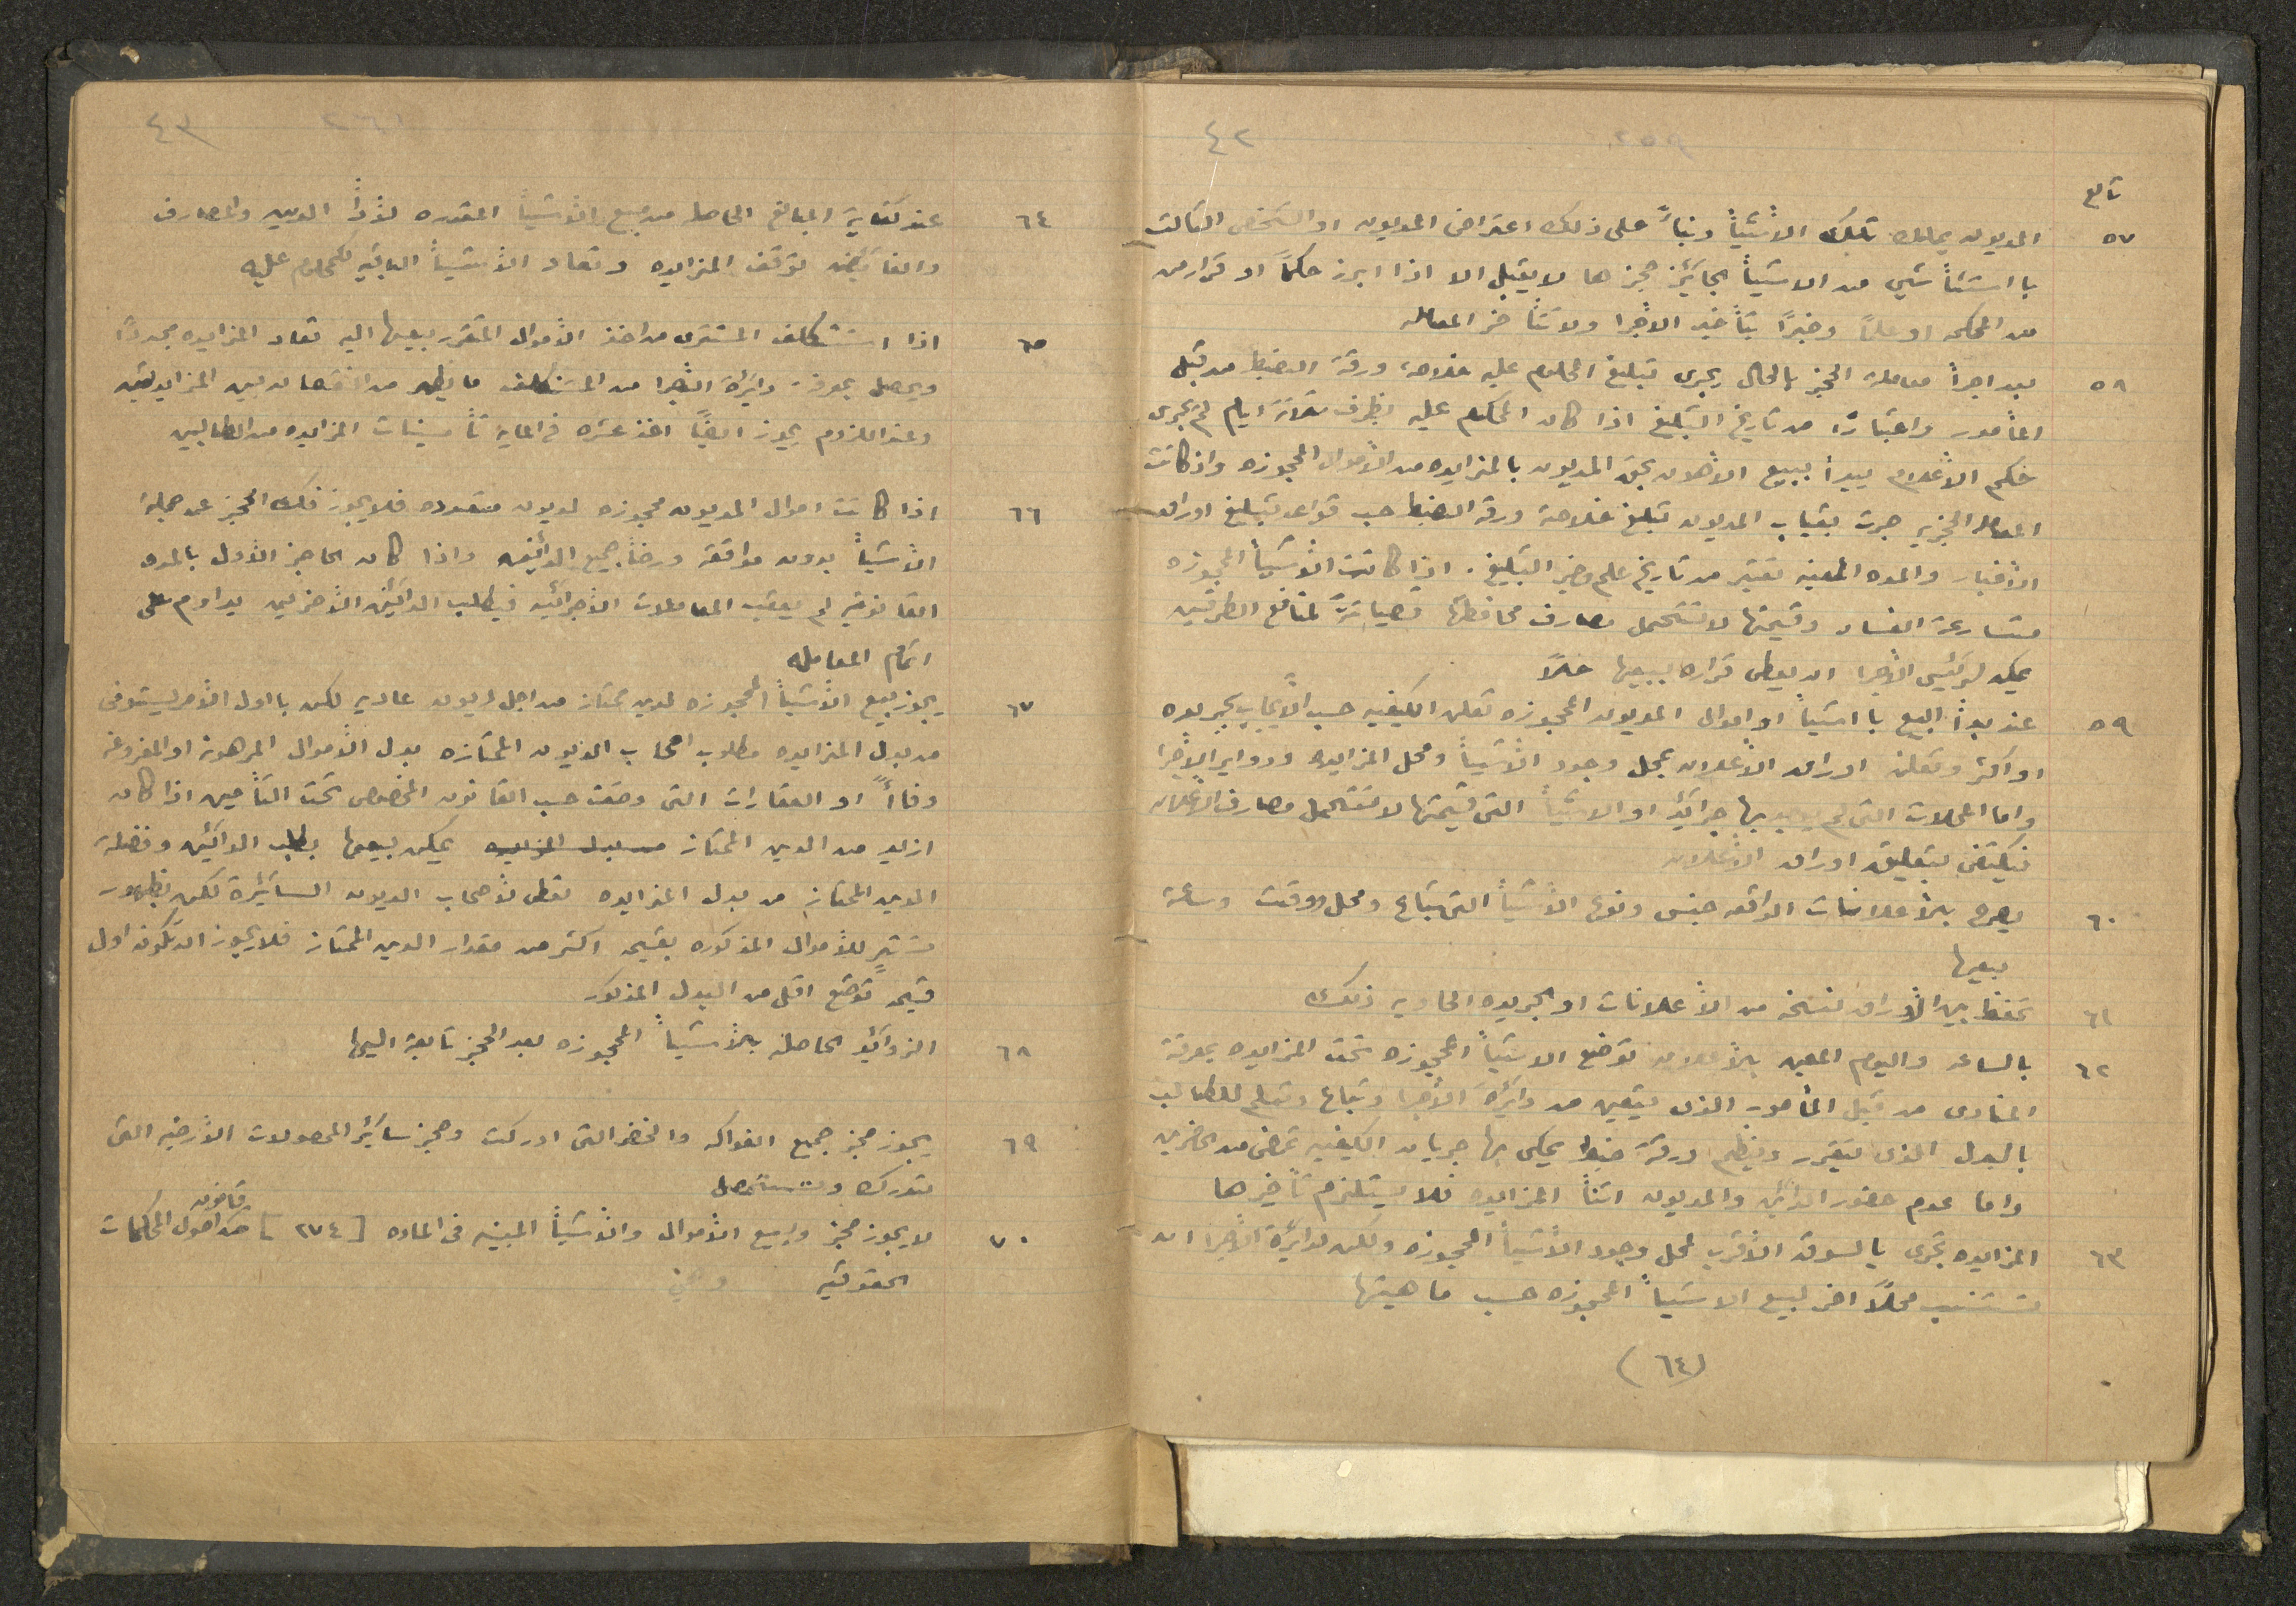 ٤٢
تابع
٥٧ المديون يملك تلك الاشيأ وبنأً على ذلك اعتراض المديون او الشخص الثالث
با استثنأ شي من الاشيأ الجائز حجزها لا يقبل الا اذا ابرز حكماً او قرار من
من المحكمه او علماً وخبراً بتأخير الاجرا ولا تتأخر المعامله
٥٨ بعد اجرأ معاملة الحجز بالحال يجرى تبليغ المحكوم عليه خلاصة ورقة الضبط من قبل
المأمور واعتباراً من تاريخ التبليغ اذا كان المحكوم عليه بظرف ثلاثة ايام لم يجرى
حكم الاعلام يبدأ ببيع الاهون بحق المديون بالمزايده من الاموال المحجوزه واذ كانت
المعامله الحجزيه جرت بغياب المديون تبليغ خلاصة ورقة الضبط حسب قواعد تبليغ اوراق
الاخبار والمده المعينه تعتبر من تاريخ علم وخبر التبليغ . اذا كانت الاشيأ المحجوزه
متسارعة الفساد وقيمتها لا تتحمل مصارف محافظتها فصيانةً لمنافع الطرفين
يمكن لرئيس الاجرا ان يعطى قراره ببيعها حالاً
٥٩ عند بدأ البيع با اشيأ او اموال المديون المحجوزه تعلن الكيفيه حسب الايجاب بجريده
او اكثر وتعلق اوراق الاعلان بمحل وجود الاشيأ ومحل المزايده ودوائر الاجرا
واما المحلات التى لم يوجد بها جرائد او الاشيأ التى قيمتها لا تتحمل مصارف الاعلان
فيكتفى بتعليق اوراق الاعلان
٦٠ يصرح بالاعلانات الواقعه جنس ونوع الاشيأ التى تباع ومحل ووقت وساعة
بيعها
٦١ تحفظ بين الاوراق نسخه من الاعلانات او الجريده الحاويه ذلك
٦٢ بالساعه واليوم المعين بالاعلان توضع الاشيأ المحجوزه تحت المزايده بمعرفة
المنادى من قبل المأمور الذى يتعين من دائرة الاجرا وتباع وتسلم للطالب
بالبدل الذى يتقرر وينظم ورقة ضبط يحكى بها جريان الكيفيه تمضى من الحاضرين
واما عدم حضور الدائن والمديون اثنأ المزايده فلا يستلزم تأخيرها
٦٣ المزايده تجرى بالسوق الاقرب لمحل وجود الاشيأ المحجوزه ولكن لدائرة الاجرا ان
تستنسب محلاً اخر لبيع الاشيأ المحجوزه حسب ماهيتها
(٦٤)
٤٣
٦٤ عند كفاية المبالغ الحاصله من بيع الاشيأ المقدره لأدأ الدين والمصارف
والفائض توقف المزايده وتعاد الاشيأ الباقيه للمحكوم عليه
٦٥ اذا استنكف المشترى من اخذ الاموال المتقرر بيعها اليه تعاد المزايده مجدداً
ويحصل بمعرفة دائرة الاجرا من المستنكف ما يظهر من النقصان بين المزايدتين
وعند اللزوم يجوز ايضاً اخذ عشره فى المايه تأمينات المزايده من الطالبين
٦٦ اذا كانت اموال المديون محجوزه لديون متعدده فلا يجوز فك الحجز عن جملة
الاشيأ بدون موافقة ورضأ جميع الدائنين واذا كان الحاجز الاول بالمده
القانونيه لم يعقب المعاملات الاجرائيه فبطلب الدائنين الاخرين يداوم على
اتمام المعامله
٦٧ يجوز بيع الاشيأ المحجوزه لدين ممتاز من اجل ديون عاديه لكن بااول الامر يستوفى
من بدل المزايده مطلوب اصحاب الديون الممتازه بدل الاموال المرهونة او المفروغة
وفأً او العقارات التى وضعت حسب القانون المخصوص تحت التأمين اذا كان
ازيد من الدين الممتاز من بدل المزايده يمكن بيعها بطلب الدائنين وفضلة
الدين الممتاز من بدل المزايده تعطى لاصحاب الديون السائرة لكن بظهور
مشترٍ للاموال المذكوره بقيمه اكثر من مقدار الدين الممتاز فلا يجوز ان تكون اول
قيمةً توضع اقل من البدل المذكور
٦٨ الزوائد الحاصله بالاشيأ المحجوزه بعد الحجز تابعة اليها
٦٩ يجوز حجز جميع الفواكه والخضر التى ادركت وحجز سائر المحصولات الارضيه التى
تدرك وتستحصل
٧٠ لا يجوز حجز وبيع الاموال والاشيأ المبينه فى الماده [٢٧٤] من قانون اصول المحاكمات
الحقوقيه وهي